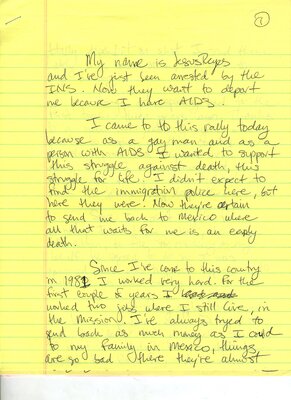 1
My name is Jesus Reyes
and I've just been arrested by the
INS. Now they want to deport
me because I have AIDS.
I came to to this rally today
because as a gay man and as a
person with AIDS I wanted to support
this struggle against death, this
struggle for life. I didn't expect to
find the immigration police here, but
here they were. Now they're certain
to send me back to Mexico where
all that waits for me is an early
death.
Since I've come to this country
in 1981 I worked very hard. For the
first couple of years I
worked two jobs where I still live, in
the Mission. I've always tryed to
send back as much money as I could
to my family in Mexico, things
are so bad there they're almost